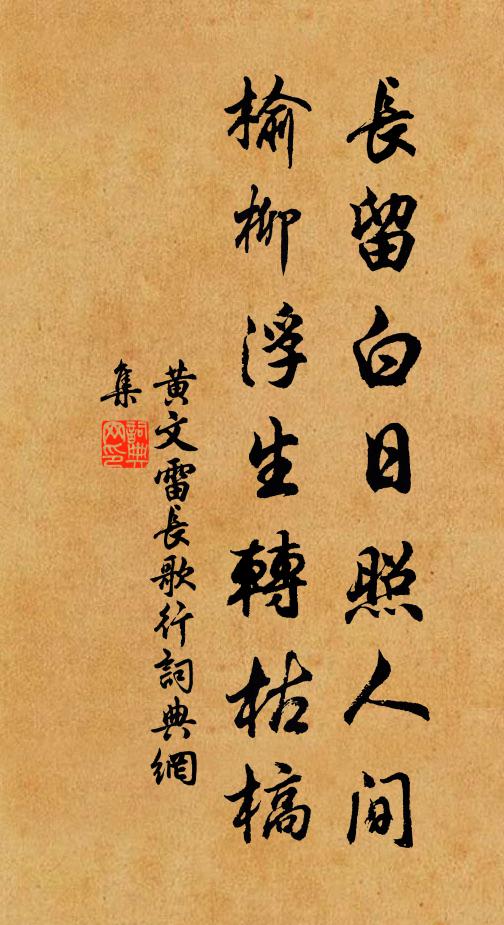 長留白日照人間
榆柳浮生轉枯槁
黃文雷長歌行詞典網
集
詞典
网印